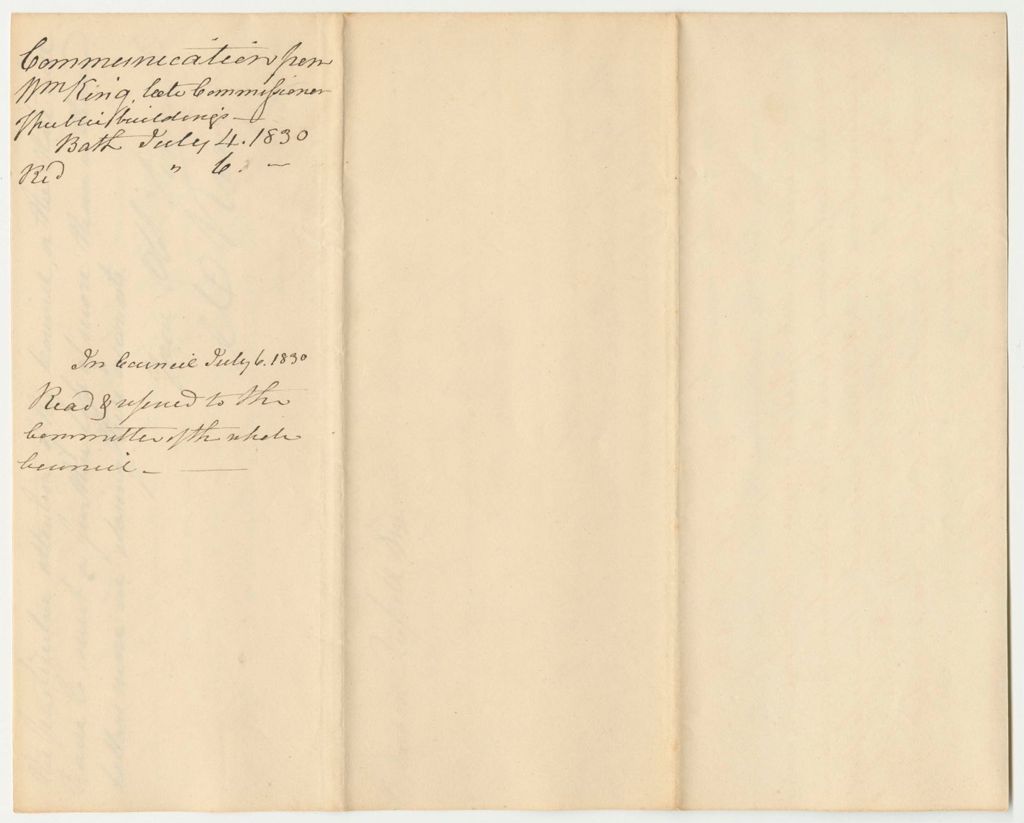 Communication from
Wm King, late Commissioner
of public buildings —
Bath July 4. 1830
Rec'd " 6. —
In Council July 6. 1830
Read & refered to the
Committee of the whole
Council. —